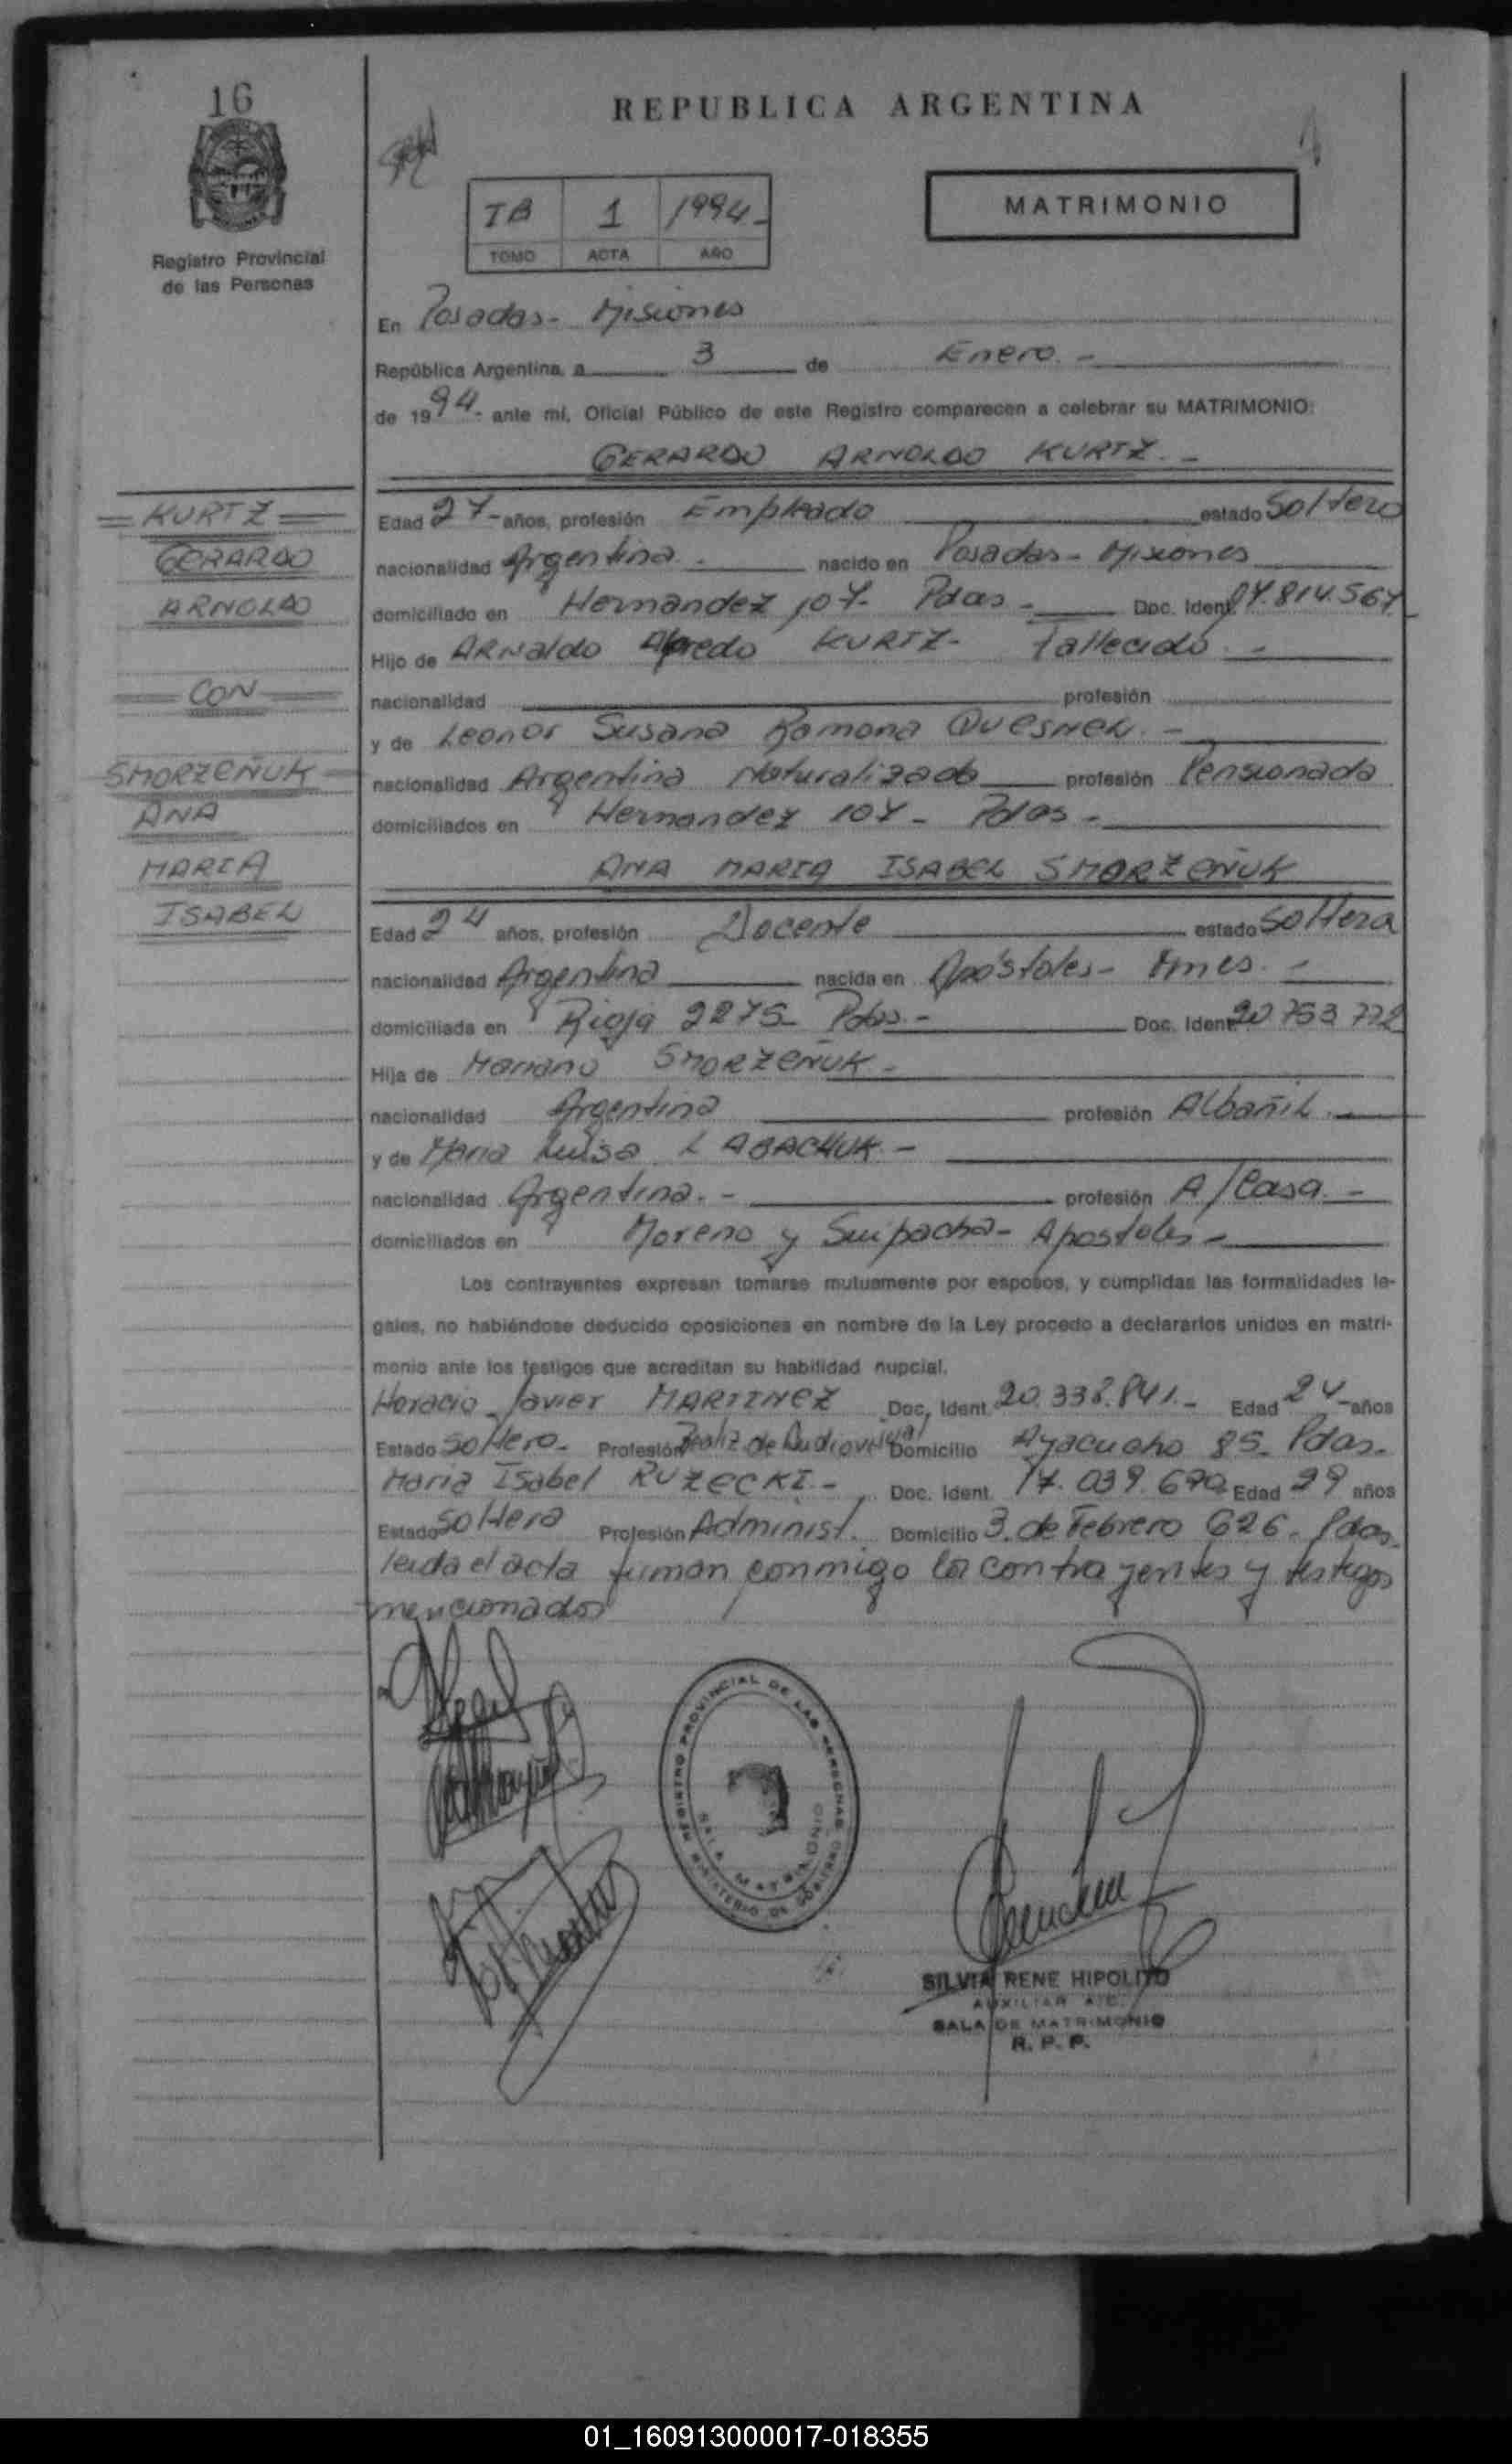 16
REPUBLICA ARGENTINA
Registro Provincial
de las Personas
TB 1 1994.-
TOMO ACTA AÑO
MATRIMONIO
En Posadas- Misiones
República Argentina, a 3 de Enero.-
de 1994.- ante mí, Oficial Público de este Registro comparecen a celebrar su MATRIMONIO:
GERARDO ARNOLDO KURTZ.-
KURTZ
GERARDO
ARNOLDO
CON
SMORZEÑUK
ANA
MARIA
ISABEL
Edad 27- años, profesión Empleado estado Soltero
nacionalidad Argentina.- nacido en Posadas- Misiones
domiciliado en Hernandez 107- Pdas- Doc. Ident. 17.814.567
Hijo de ARNaldo Alfredo KURTZ- Fallecido.-
nacionalidad profesión
y de Leonor Susana Ramona QUESNEL.-
nacionalidad Argentina Naturalizada profesión Pensionada
domiciliados en Hernandez 107- Pdas-
ANA MARIA ISABEL SMORZEÑUK
Edad 24 años, profesión Docente estado Soltera
nacionalidad Argentina nacida en Apóstoles- Mnes.-
domiciliada en Rioja 2275- Pdas.- Doc. Ident. 20 753 772
Hija de Mariano SMORZEÑUK-
nacionalidad Argentina profesión Albañil.-
y de Maria Luisa LABACHUK.-
nacionalidad Argentina.- profesión A/Casa.-
domiciliados en Moreno y Suipacha- Apostoles-
Los contrayentes expresan tomarse mutuamente por esposos, y cumplidas las formalidades le-
gales, no habiéndose deducido oposiciones en nombre de la Ley procedo a declararlos unidos en matri-
monio ante los testigos que acreditan su habilidad nupcial.
Horacio Javier MARTINEZ Doc. Ident. 20.338.841.- Edad 24- años
Estado Soltero- Profesión Realiz de Audiovisual Domicilio Ayacucho 85- Pdas-
Maria Isabel RUZECKI.- Doc. Ident. 17.039.670 Edad 29 años
Estado Soltera Profesión Administ. Domicilio 3 de Febrero 626- Pdas.
leida el acta firman conmigo los contrayentes y testigos
mencionados
REGISTRO PROVINCIAL DE LAS PERSONAS
MINISTERIO DE GOBIERNO
SALA MATRIMONIO
SILVIA RENE HIPOLITO
AUXILIAR
SALA DE MATRIMONIO
R. P. P.
01_160913000017-018355